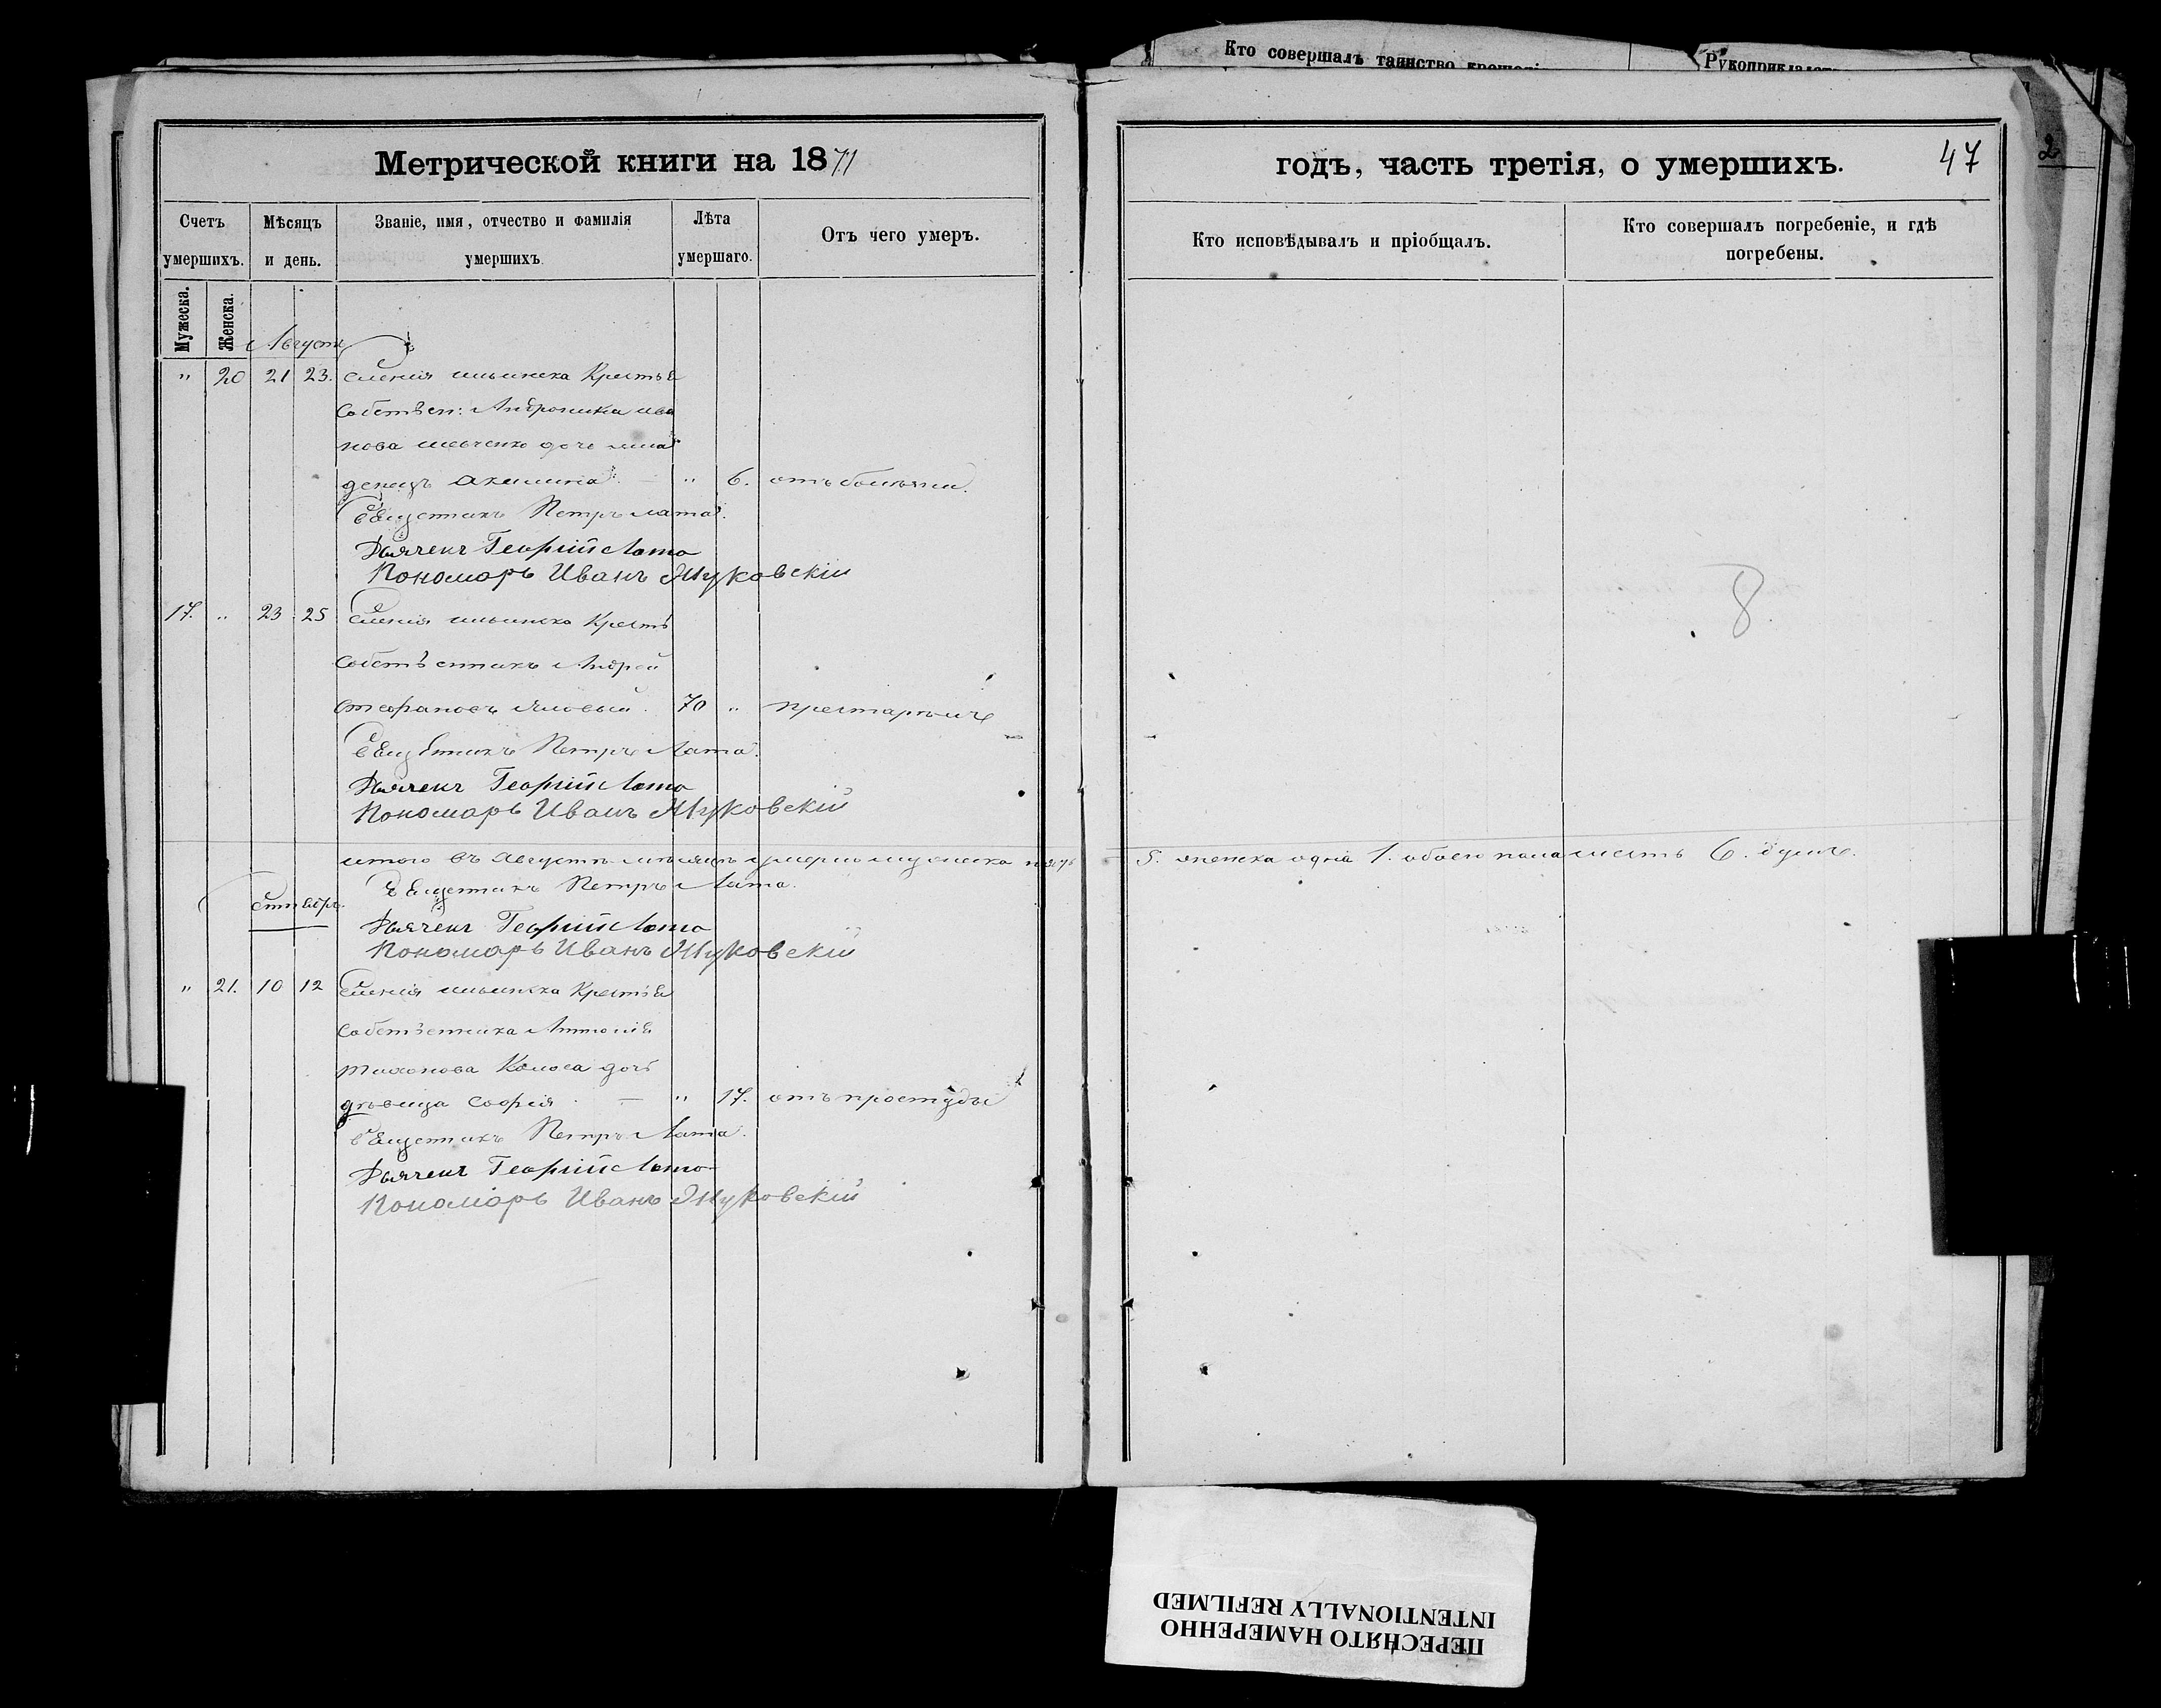 Кто совершалъ таинство крещені
Рукоприкладст
Метрической книги на 1871
годъ, часть третія, о умершихъ.
47
2
Счетъ умершихъ.
Мѣсяцъ и день.
Званіе, имя, отчество и фамилія умершихъ.
Лѣта умершаго.
Отъ чего умеръ.
Кто исповѣдывалъ и пріобщалъ.
Кто совершалъ погребеніе, и гдѣ погребены.
Мужеска.
Женска.
Августъ
" 20 21 23. Сѣленія Крестья
Собствен: Андроника ива
нова дочь мла
денецъ Акилина — " 6. отъ
Священникъ Петръ Лата.
Дьячекъ Георгій Лата
Пономарь Иванъ Жуковскій
8
17. " 23 25 Сѣленія Крестья
Собственникъ Андрей
Стефановъ Яловый. 70 "
Священникъ Петръ Лата.
Дьячекъ Георгій Лата
Пономарь Иванъ Жуковскій
итого въ Августѣ мѣсяцѣ умерло мужеска пять 5. женска одна 1. обоего пола шесть 6. душъ.
Священникъ Петръ Лата.
Сентябрь
Дьячекъ Георгій Лата
Пономарь Иванъ Жуковскій
" 21. 10 12 Сѣленія Крестья
Собственника Антонія
Тихонова Колоса дочь
дѣвица Софія — " 17. отъ простуды
Священникъ Петръ Лата.
Дьячекъ Георгій Лата
Пономарь Иванъ Жуковскій
ПЕРЕСНЯТО НАМЕРЕННО
INTENTIONALLY REFILMED